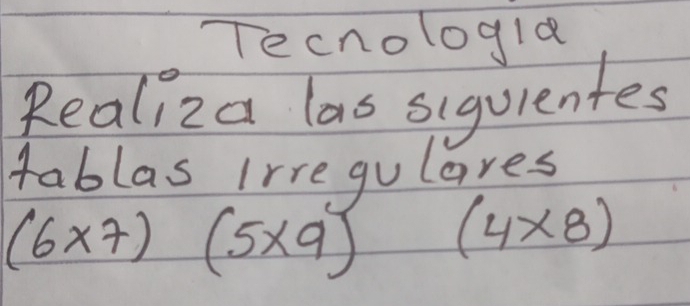 Tecnologia
Realiza las siguientes
tablas irregulares
(6x7) (5x9) (4x8)